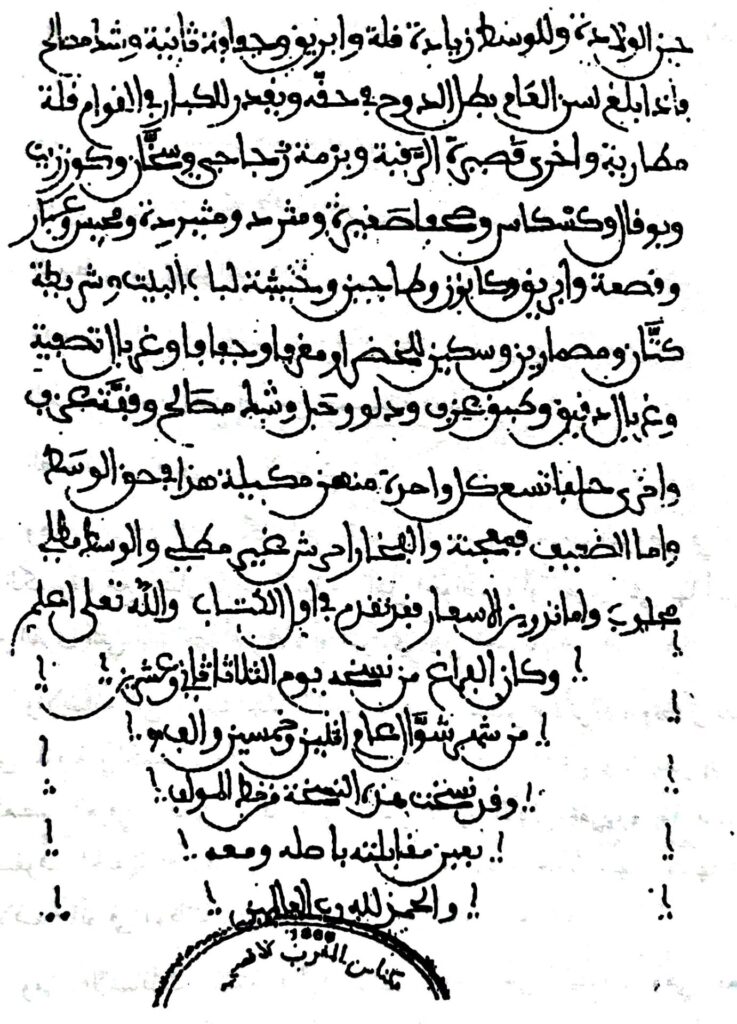 حين الولادة، وللوسط زيادة قلة وابريق وجفاونة ثانية وشد مصالح
فاذا بلغ لسن الفام بطل الدوح في حقه ويقدر للكبار في القوام قلة
مطارية واخرى قصيرة الرقبة وبرمة زجاجي وسخان وكوززيت
وبوقال وكسكاس وصغيرة ومثرد ومثيردة وعبار
وقصعة وابريق وكانون وطاجين وخنيشة لباب البيت وشريطة
كتان ومصمارين وسكين للخضار ومغرفا وجفافا وغربال تصفية
وغربال دقيق وكبوعزف ودلو وحبل وشبك مصالح وقفة عزف
واخرى حلفا تسع كل واحدة منهن مكيلة هذا في حق الوسط
واما الضعيف فمعجنة والفخار احرش غير مطلي والوسط مطلي
مجلوب واما تزويز الاسعار فقد تقدم في اول الكتاب والله تعلى اعلم
وكان الفراغ من نسخه يوم الثلاثا ثاني وعشرين
من شهر شوال عام اثنين وخمسين والف
وقد نسخت هذه النسخة من خط المولف
بعين مقابلته باصله ومعه
والحمد لله رب العالمين
مكناس المغرب الاقصى